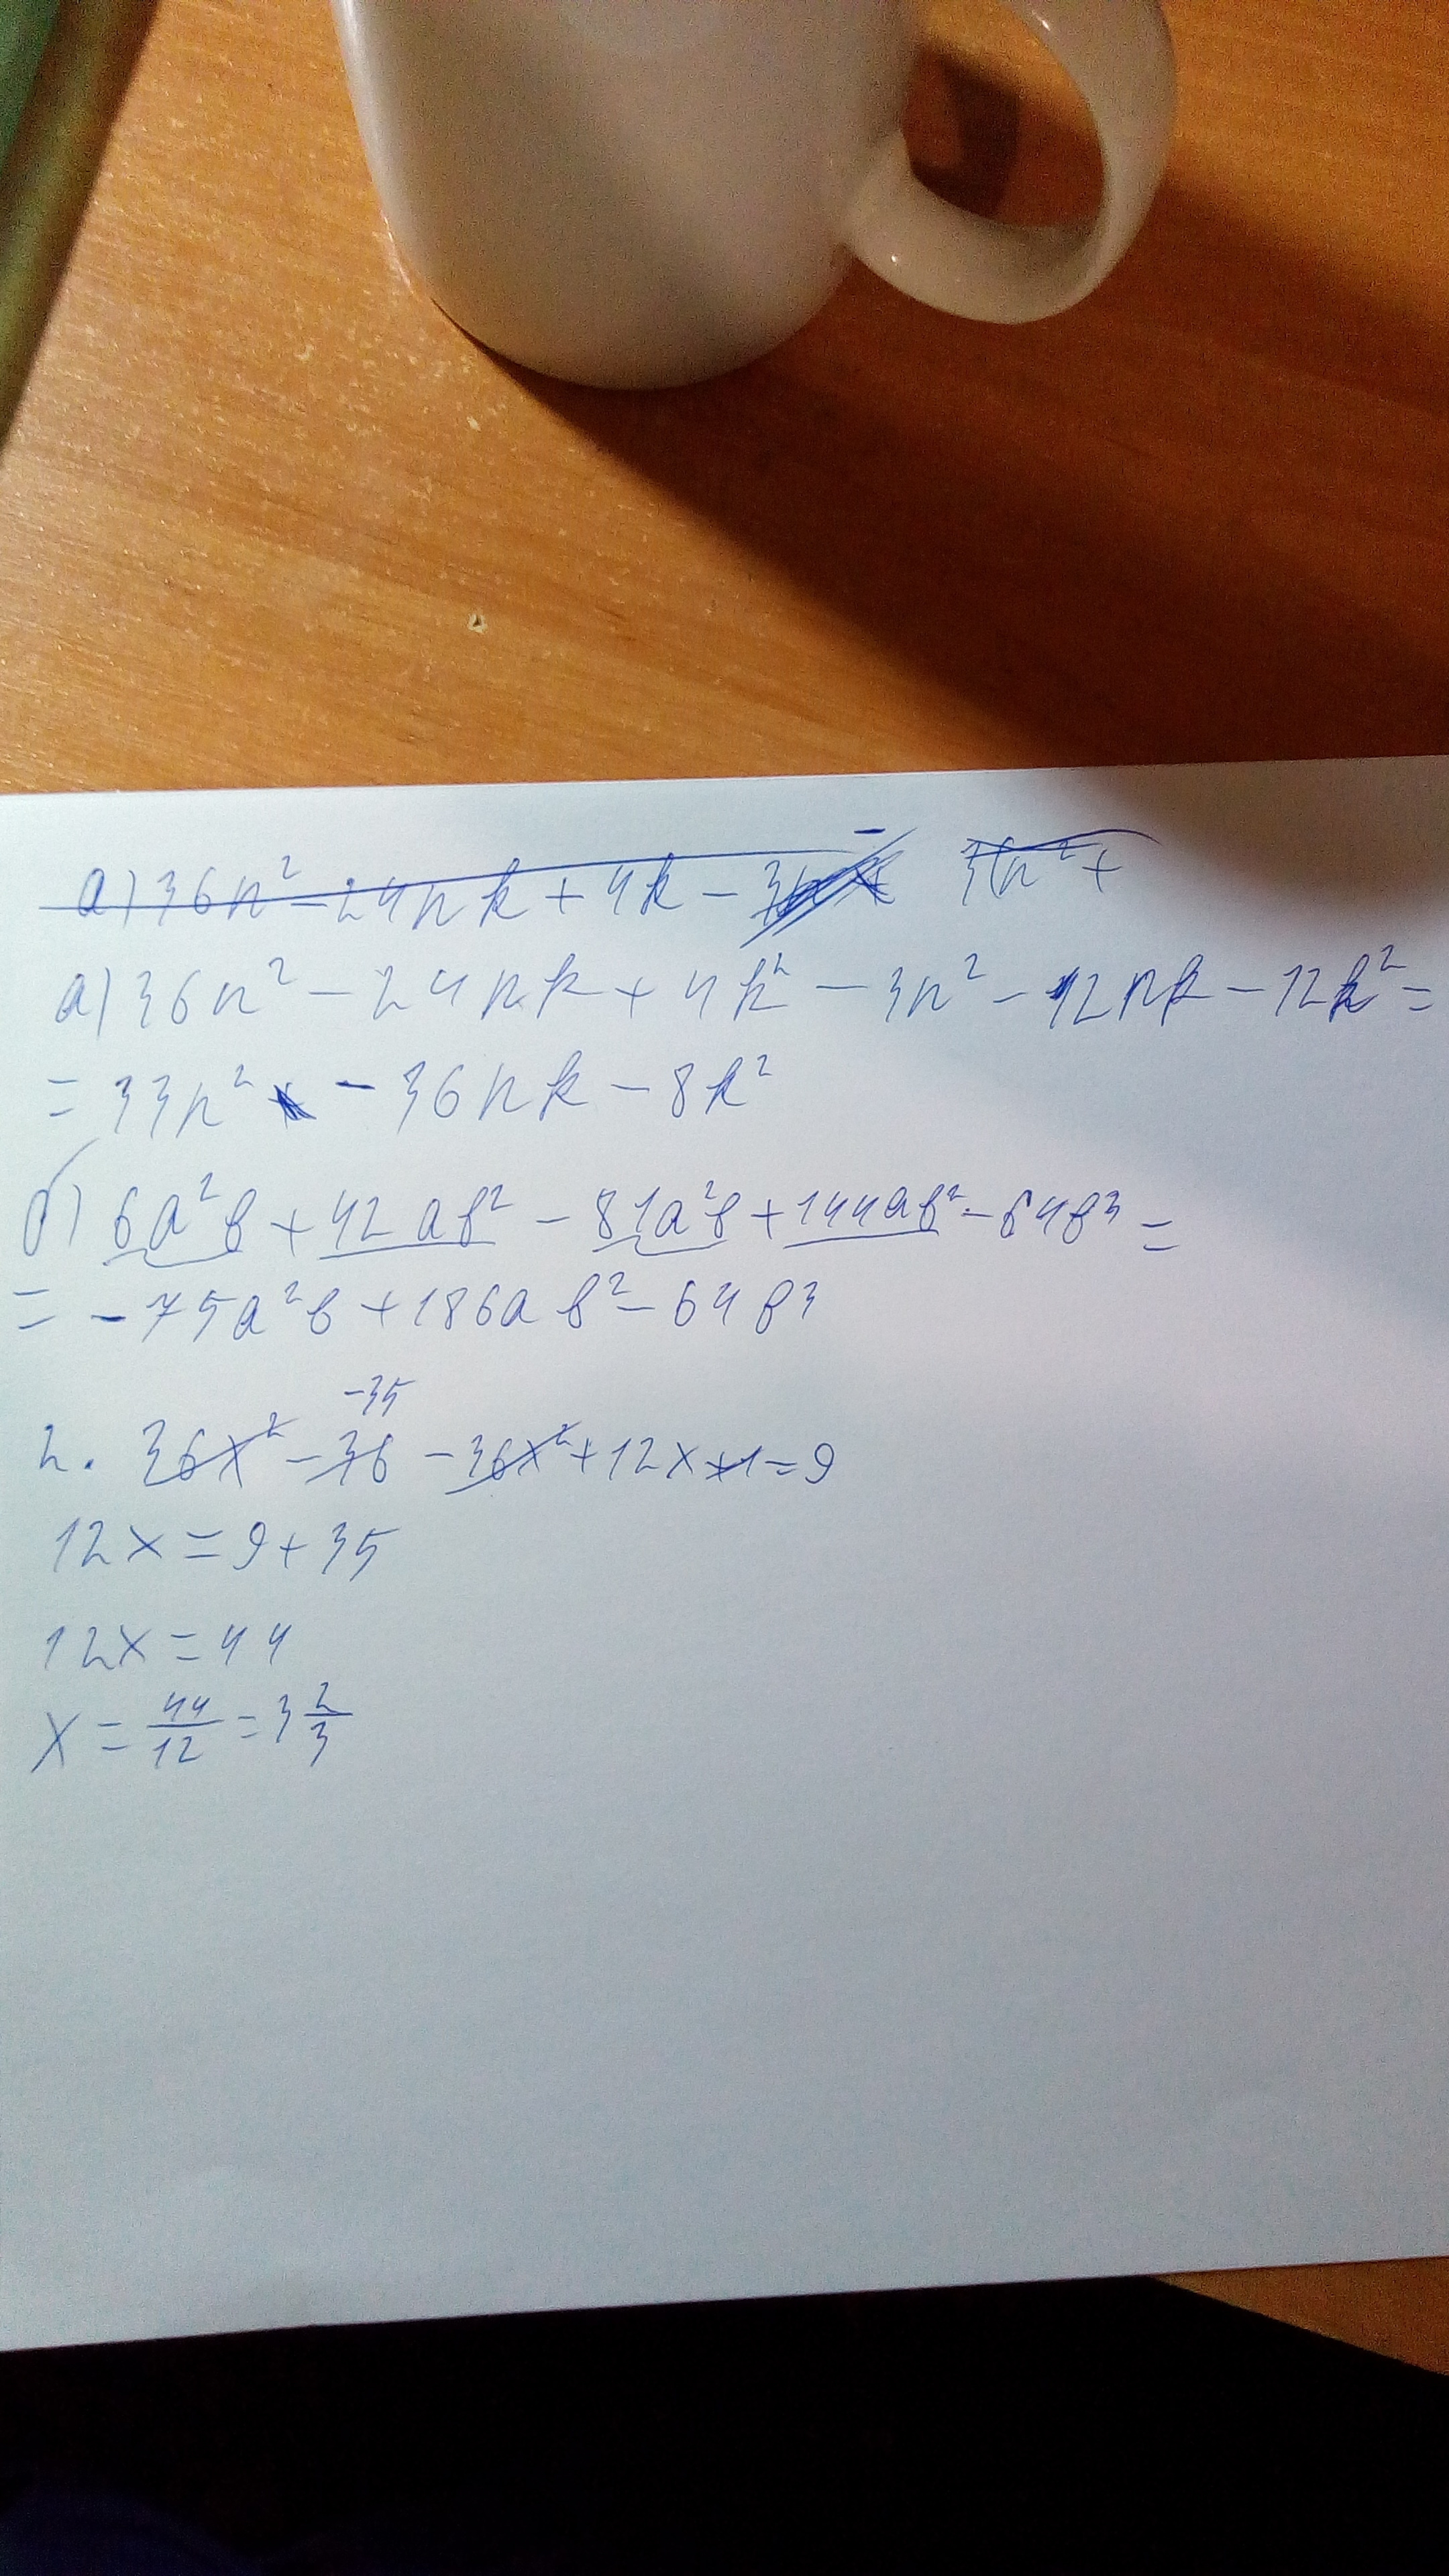 а) 36n² - 24nk + 4k - 3n² +
а) 36n² - 24nk + 4k² - 3n² - 12nk - 12k² =
= 33n² - 36nk - 8k²
б) 6a²b + 42ab² - 81a²b + 144ab² - 64b³ =
= -75a²b + 186ab² - 64b³
-35
2. 36x² - 36 - 36x² + 12x + 1 = 9
12x = 9 + 35
12x = 44
x = 44/12 = 3 2/3